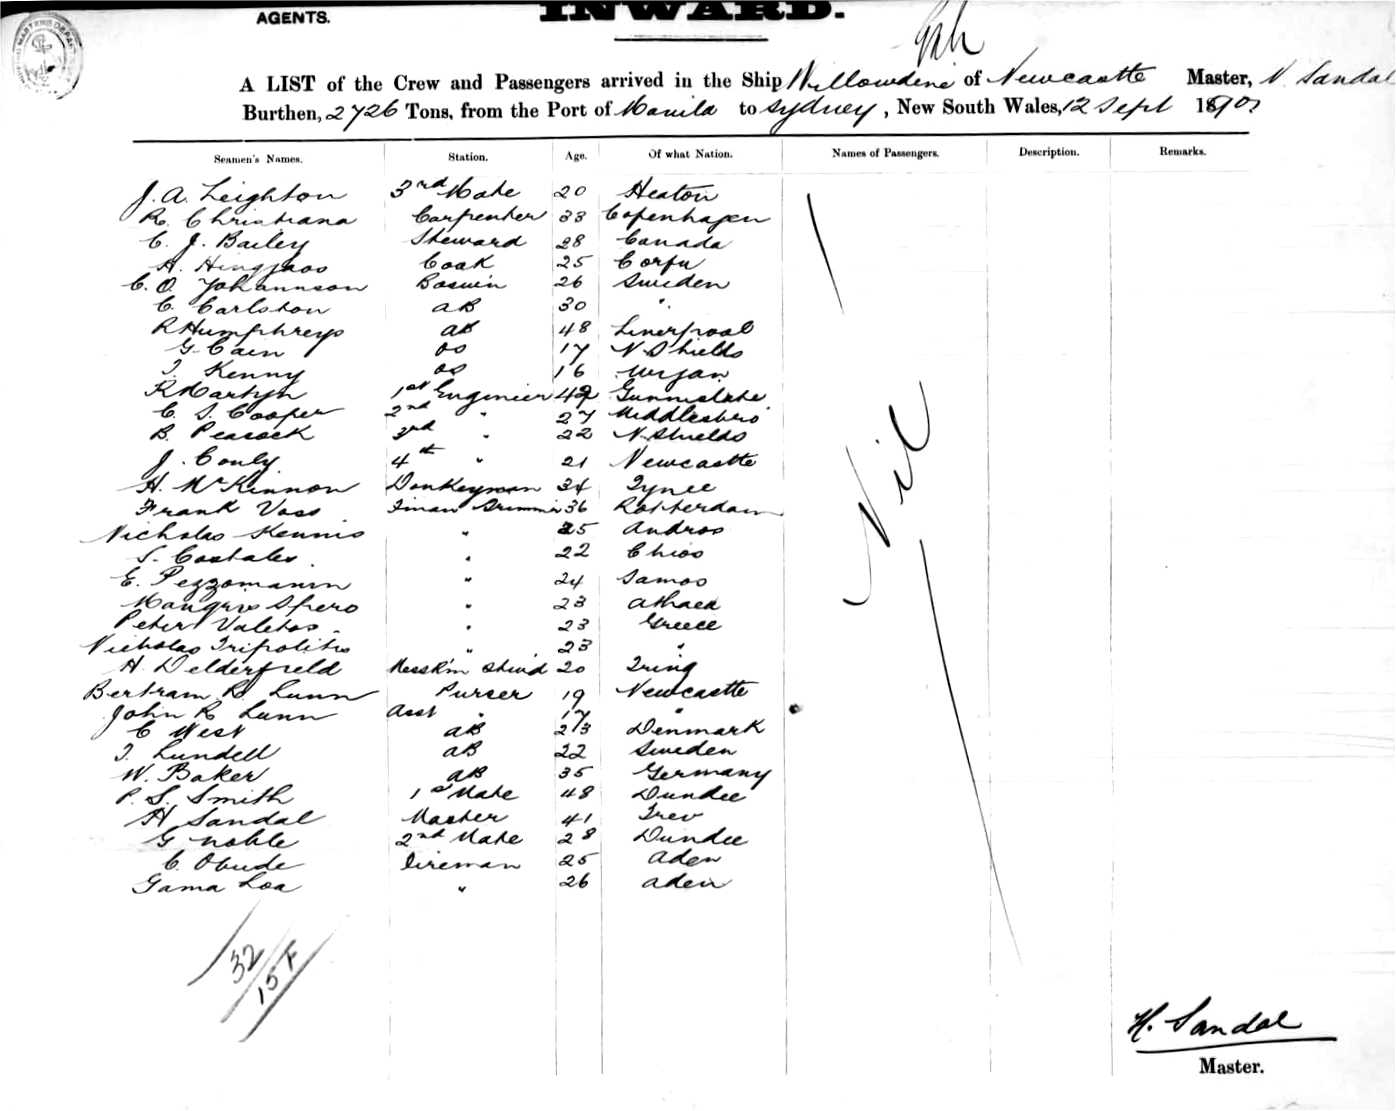 AGENTS.
INWARD.
A LIST of the Crew and Passengers arrived in the Ship Willowdene of Newcastle Master, H. Sandal
Burthen, 2726 Tons, from the Port of Manila to Sydney, New South Wales, 12 Sept 1901
Seamen's Names. Station. Age. Of what Nation. Names of Passengers. Description. Remarks.
J. A. Leighton 3rd Mate 20 Heaton
R. Christiana Carpenter 33 Copenhagen
C. J. Bailey Steward 28 Canada
A. Cook 25 Corfu
C. O. Johannson Bosun 26 Sweden
C. Carlston AB 30 "
R Humphreys AB 48 Liverpool
G Cain OS 17 N. Shields
T. Kenny OS 16 Wigan
R Martyn 1st Enginier 42 Gunnislake
C. S. Cooper 2nd " 27 Middlesbro
B. Peacock 3rd " 22 N. Shields
J. Conly 4th " 21 Newcastle
H. McKinnon Donkeyman 34 Tynee
Frank Voss 36 Rotterdam
Nicholas Kennis " 25 Andros
S. Costales " 22 Chios
E. Pezzomanin " 24 Samos
Spero " 23
Peter Valetos " 23 Greece
Nicholas Tripolitis " 23 "
H. Delderfield Messr'm Stew'd 20 Tring
Bertram R. Lunn Purser 19 Newcastle
John R. Lunn Asst " 17 "
C West AB 23 Denmark
T. Lundell AB 22 Sweden
W. Baker AB 35 Germany
P. S. Smith 1st Mate 48 Dundee
H Sandal Master 41
G Noble 2nd Mate 28 Dundee
C. Obude Fireman 25 Aden
Gama Loa " 26 Aden
Nil
32
15 F
H. Sandal
Master.